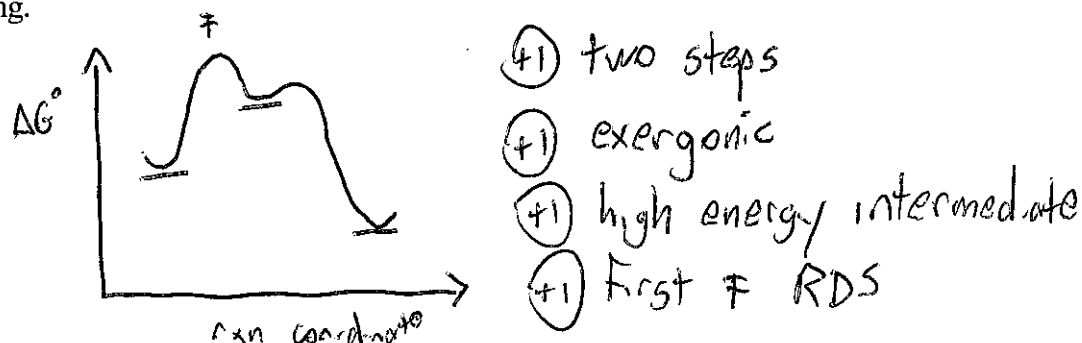 ng.
‡
ΔG°
rxn coordinate
+1 two steps
+1 exergonic
+1 high energy intermediate
+1 First ‡ RDS